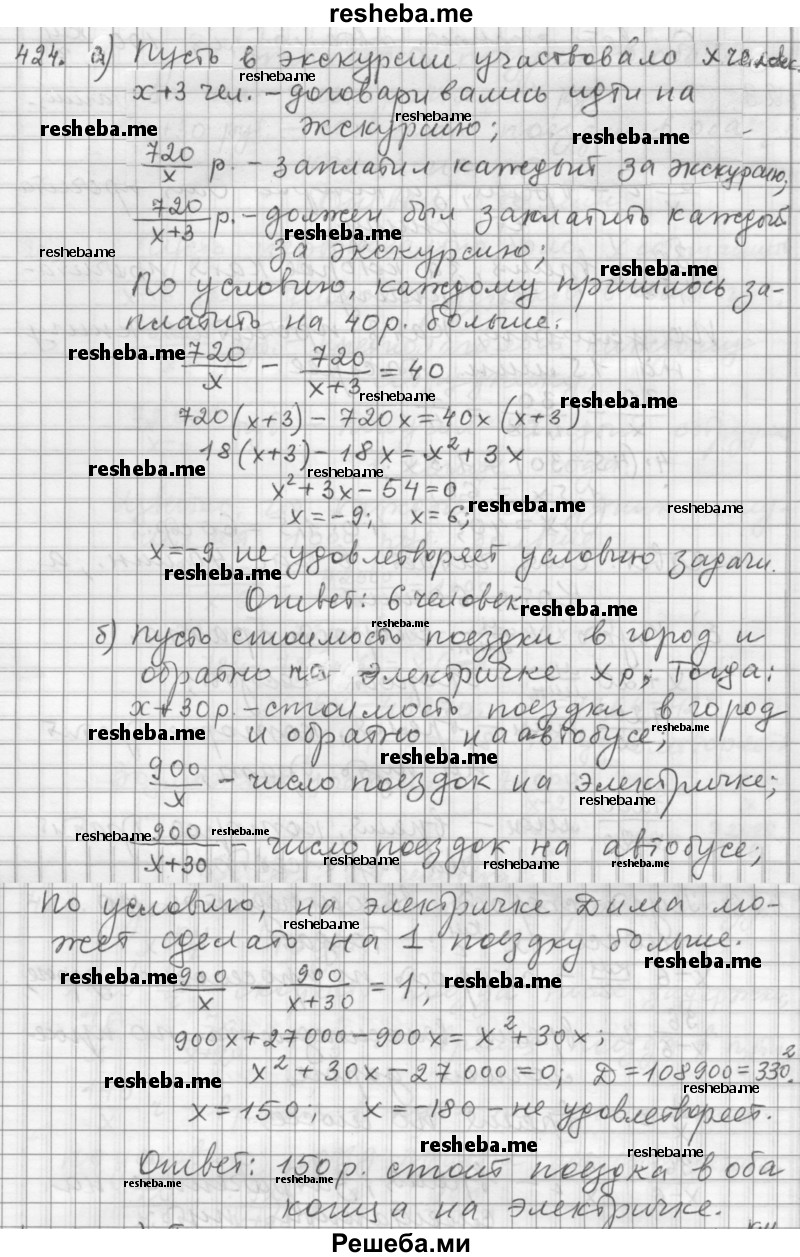 resheba.me
424. а) Пусть в экскурсии участвовало х человек.
resheba.me
х+3 чел. – договаривались идти на
resheba.me
resheba.me экскурсию; resheba.me
720/x р. – заплатил каждый за экскурсию;
720/(x+3) р. – должен был заплатить каждый
resheba.me
resheba.me за экскурсию; resheba.me
По условию, каждому пришлось за-
платить на 40р. больше:
resheba.me 720/x – 720/(x+3) = 40
resheba.me resheba.me
720(x+3) – 720x = 40x(x+3)
18(x+3) – 18x = x²+3x
resheba.me resheba.me
x²+3x–54=0
x=–9; x=6; resheba.me resheba.me
x=–9 не удовлетворяет условию задачи.
resheba.me
Ответ: 6 человек resheba.me
resheba.me
б) Пусть стоимость поездки в город и
обратно на электричке х р; Тогда:
х+30р. – стоимость поездки в город
resheba.me и обратно на автобусе; resheba.me
resheba.me
900/x – число поездок на электричке;
resheba.me
resheba.me 900/(x+30) resheba.me – число поездок на автобусе;
resheba.me resheba.me resheba.me
По условию, на электричке Дима мо-
resheba.me
жет сделать на 1 поездку больше.
resheba.me
resheba.me 900/x – 900/(x+30) = 1; resheba.me
900x+27000–900x= x²+30x;
x²+30x–27000=0; D=108900=330².
resheba.me resheba.me
x=150; x=–180 – не удовлетворяет.
resheba.me
Ответ: 150р. стоит поездка в оба
resheba.me
resheba.me resheba.me
конца на электричке.
Решеба.ми